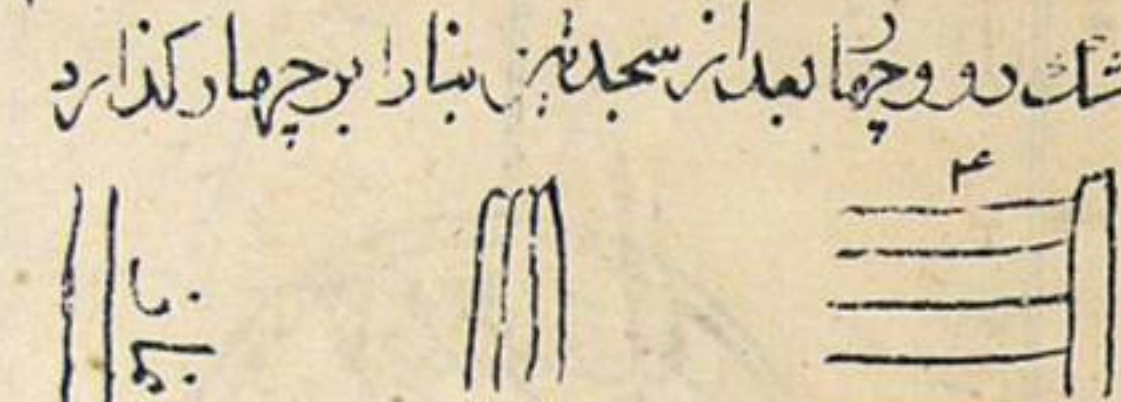 شك دو و چهار بعد از سجدتین بنا را بر چهار كذارد
۴